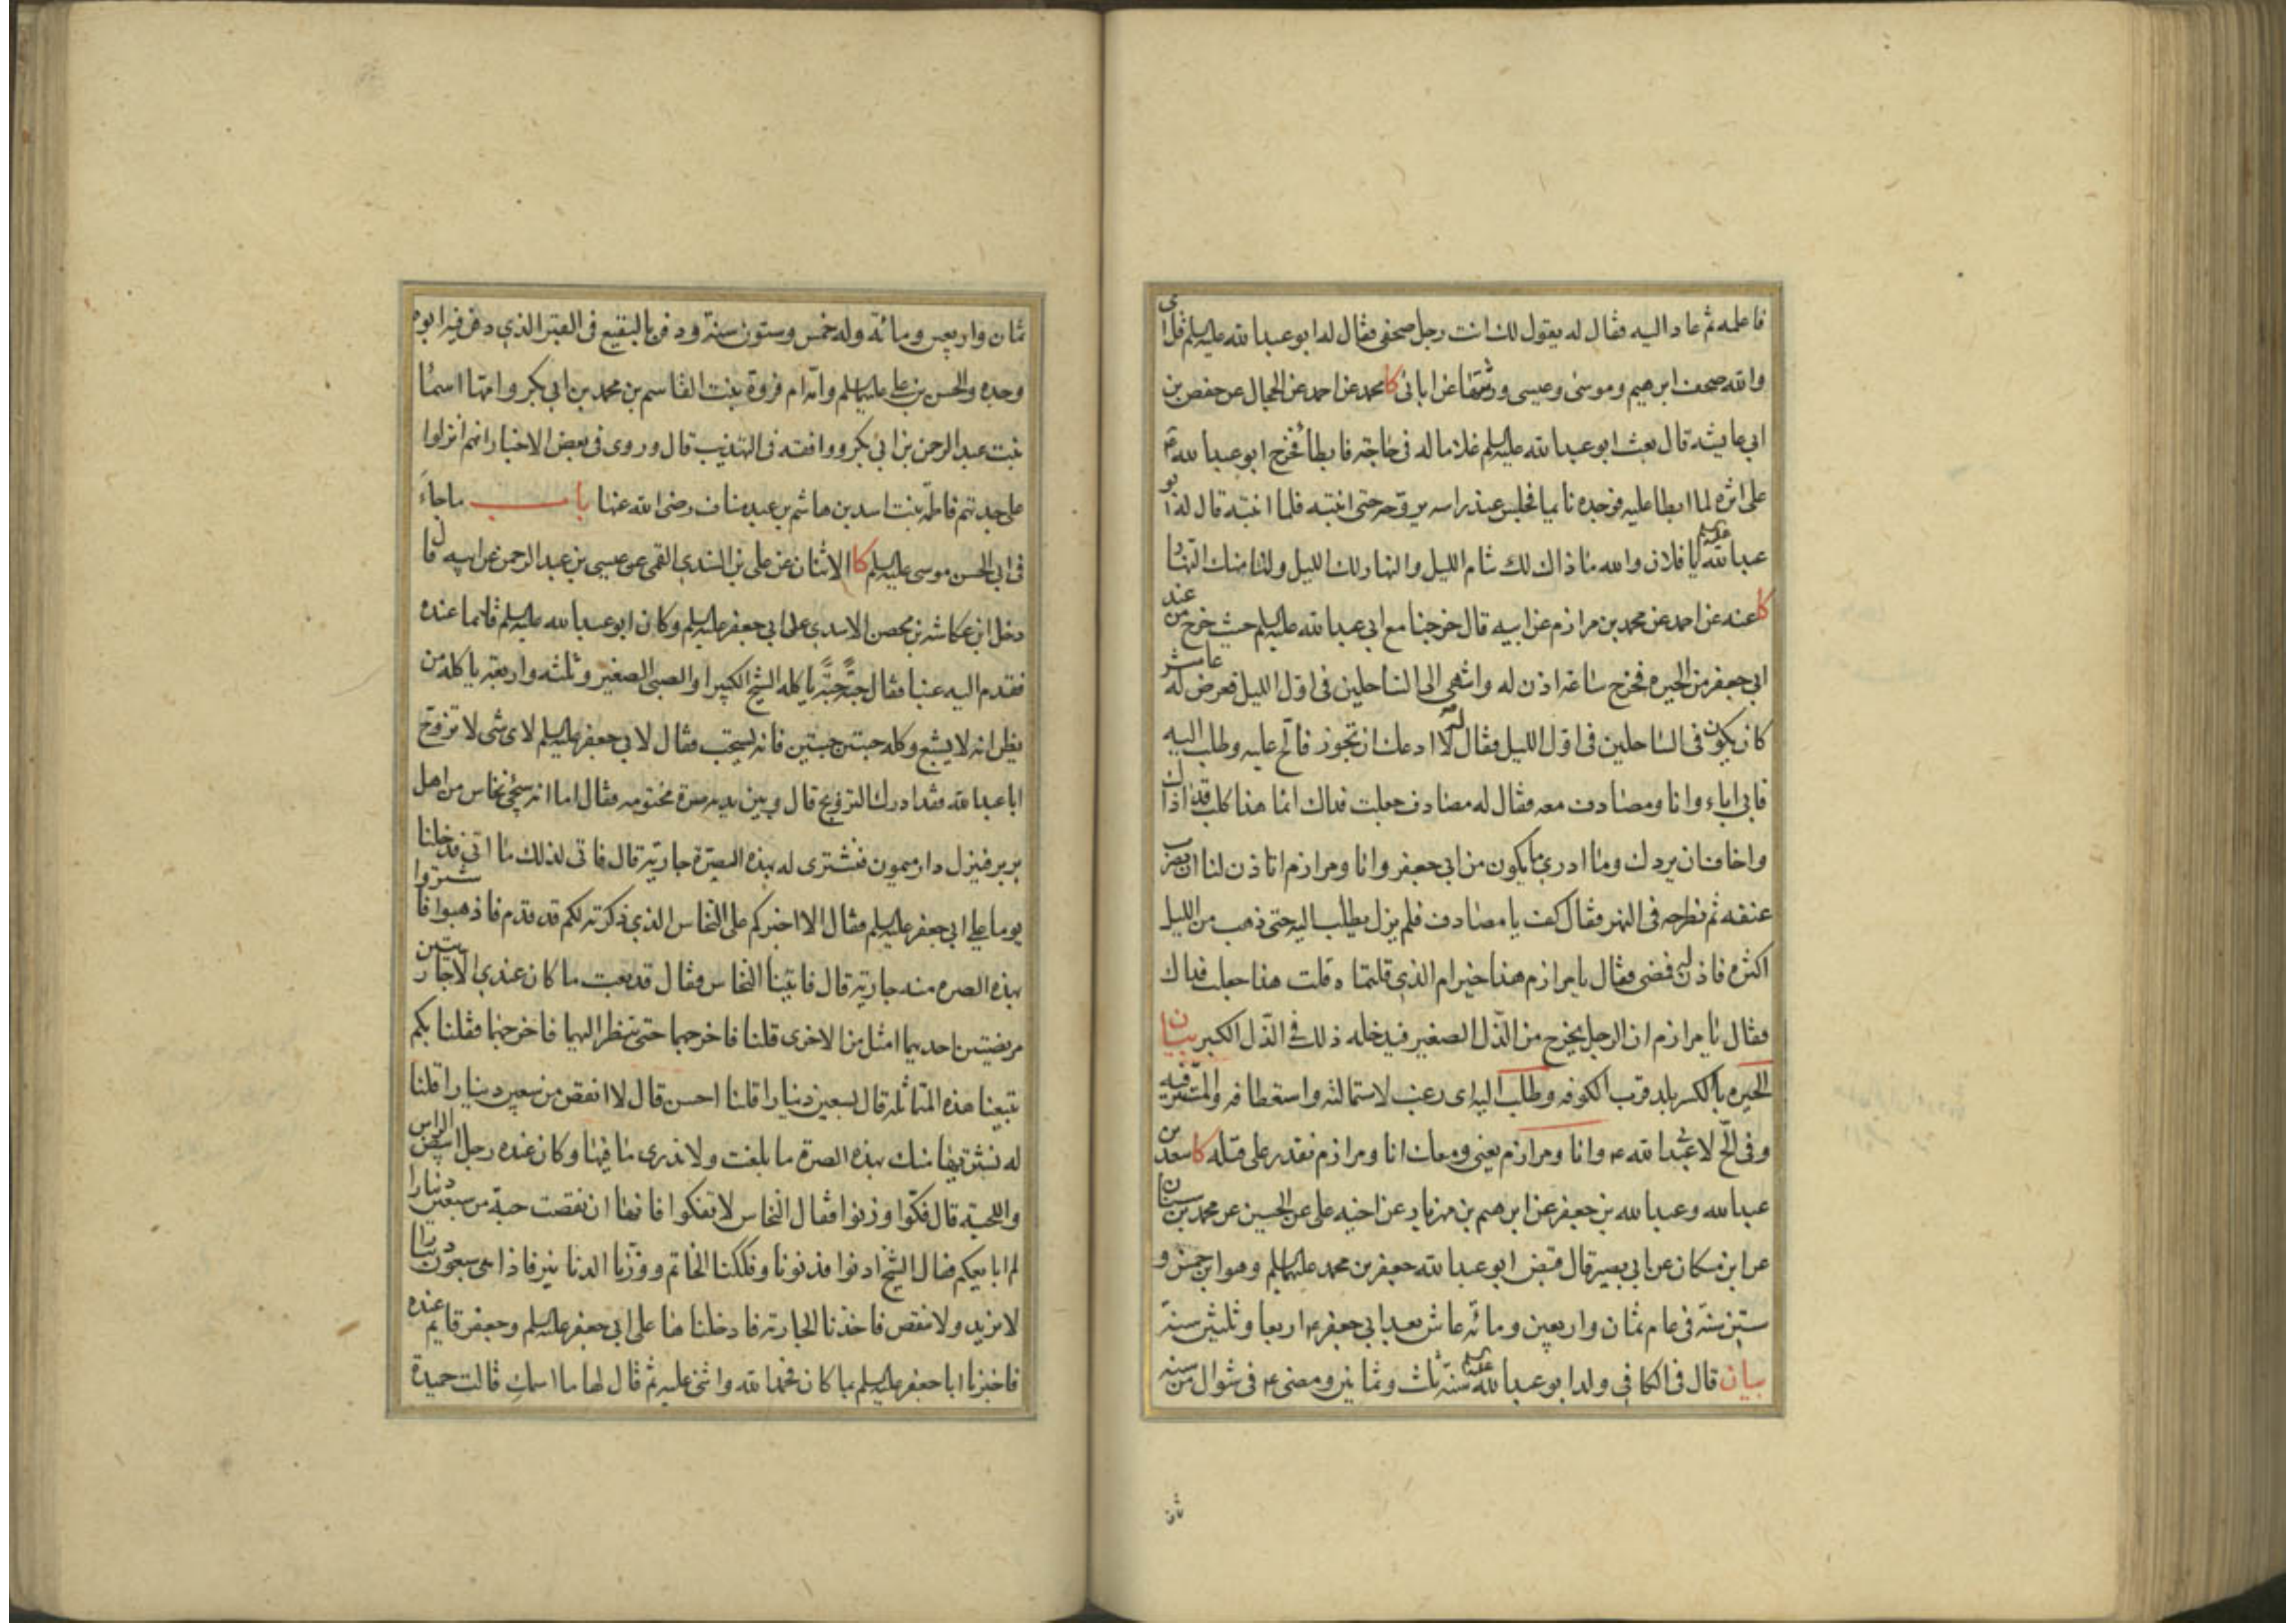 فاعلمه ثم عاد اليه فقال له يقول لك انت رجل صحفي فقال له ابو عبد الله عليه السلم قل اي
والله صحف ابرهيم وموسى وعيسى ورثتها عن ابائي كا محمد عن احمد عن الحجال عن حفص بن
ابي عايشه قال بعث ابو عبد الله عليه السلم غلاما له في حاجة فابطأ فخرج ابو عبد الله ع
على اثره لما ابطا عليه فوجده نايما فجلس عند راسه يروّحه حتى انتبه فلما انتبه قال له ابو
عبد الله عليه السلم يا فلان والله ما ذاك لك تنام الليل والنهار لك الليل ولنا منك النهار
كا عنه عن احمد عن محمد بن مرازم عن ابيه قال خرجنا مع ابي عبد الله عليه السلم حيث خرج من عند
ابي جعفر من الحيره فخرج ساعة اذن له وانتهى الى الساحلين في اوّل الليل فعرض له عاشر
كان يكون في الساحلين في اوّل الليل فقال له لا ادعك ان تجوز فالحّ عليه وطلب اليه
فابى اباء وانا ومصادف معه فقال له مصادف جعلت فداك انما هذا كلب قد اذاك
واخاف ان يردك وما ادري ما يكون من ابي جعفر وانا ومرازم اتاذن لنا ان نضرب
عنقه ثم نطرحه في النهر فقال كف يا مصادف فلم يزل يطلب اليه حتى ذهب من الليل
اكثره فاذن له فمضى فقال يا مرازم هذا خير ام الذي قلتماه قلت هذا جعلت فداك
فقال يا مرازم ان الرجل يخرج من الذّل الصغير فيدخله ذلك في الذّل الكبير بيان
الحيره بالكسر بلد قرب الكوفه وطلب اليه اي رغب لاستمالته واستعطافه والمستتر فيه
وفي الحّ لابي عبد الله ع وانا ومرازم يعني ومعك انا ومرازم نقدر على قتله كا سعد بن
عبد الله وعبد الله بن جعفر عن ابرهيم بن مهزيار عن اخيه علي عن الحسين عن محمد بن سنان
عن ابن مسكان عن ابي بصير قال قبض ابو عبد الله جعفر بن محمد عليهما السلم وهو ابن خمس و
ستين سنة في عام ثمان واربعين ومائه عاش بعد ابي جعفر ع اربعا وثلثين سنة
بيان قال في الكافي ولد ابو عبد الله عليه السلم سنة ثلث وثمانين ومضى ع في شوال من سنه
ثمان
ثمان واربعين ومائة وله خمس وستون سنة ودفن بالبقيع في القبر الذي دفن فيه ابوه
وجده والحسن بن علي عليهما السلم وامّه ام فروة بنت القاسم بن محمد بن ابي بكر وامها اسماء
بنت عبد الرحمن بن ابي بكر ووافقه في التهذيب قال وروى في بعض الاخبار انهم انزلوا
على جدتهم فاطمة بنت اسد بن هاشم بن عبد مناف رضي الله عنها باب ما جاء
في ابي الحسن موسى عليه السلم كا الاثنان عن علي بن السندي القمي عن عيسى بن عبد الرحمن عن ابيه قال
دخل ابن عكاشه بن محصن الاسدي على ابي جعفر عليه السلم وكان ابو عبد الله عليه السلم قائما عنده
فقدم اليه عنبا فقال حبّة حبّة ياكله الشيخ الكبير او الصبي الصغير وثلثه واربعة ياكله من
يظن انه لا يشبع وكله حبتين حبتين فانه يستحب فقال لابي جعفر عليه السلم لاي شي لا تزوّج
ابا عبد الله فقد ادرك التزويج قال وبين يديه صرة مختومه فقال اما انه سيجئ نخاس من اهل
بربر فينزل دار ميمون فنشتري له بهذه الصرّة جارية قال فاتى لذلك ما اتى فدخلنا
يوما على ابي جعفر عليه السلم فقال الا اخبركم على النخاس الذي ذكرته لكم قد قدم فاذهبوا فاشتروا
بهذه الصره منه جارية قال فاتينا النخاس فقال قد بعت ما كان عندي الا جاريتين
مريضتين احديهما امثل من الاخرى قلنا فاخرجهما حتى ننظر اليهما فاخرجهما فقلنا بكم
تبيعنا هذه المتماثله قال بسبعين دينارا قلنا احسن قال لا انقص من سبعين دينارا قلنا
له نشتريها منك بهذه الصرة ما بلغت ولا ندري ما فيها وكان عنده رجل ابيض الراس
واللحية قال فكّوا وزنوا فقال النخاس لا تفكوا فانها ان نقصت حبة من سبعين دينارا
لم ابايعكم فقال الشيخ ادنوا فدنونا وفككنا الخاتم ووزنّا الدنانير فاذا هي سبعون دينارا
لا تزيد ولا تنقص فاخذنا الجارية فادخلناها على ابي جعفر عليه السلم وجعفر قايم عنده
فاخبرنا ابا جعفر عليه السلم بما كان فحمد الله واثنى عليه ثم قال لها ما اسمك قالت حميدة